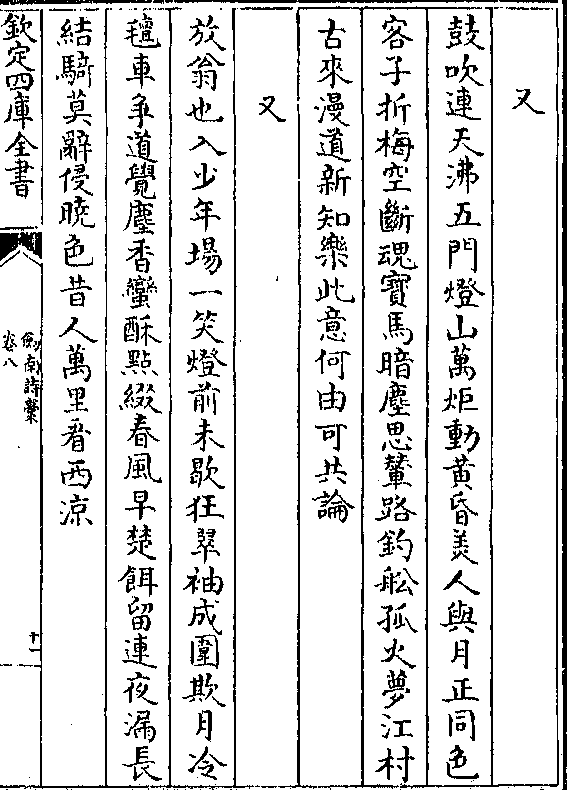 又
鼓吹連天沸五門燈山萬炬動黃昏美人與月正同色
客子折梅空斷魂寶馬暗塵思輦路釣船孤火夢江村
古來漫道新知樂此意何由可共論
又
放翁也入少年場一笑燈前未歇狂翠袖成圍欺月冷
氊車争道覺塵香蠻酥點綴春風早楚餌留連夜漏長
結騎莫辭侵曉色昔人萬里看西涼
欽定四庫全書
劔南詩槀
卷八
十一